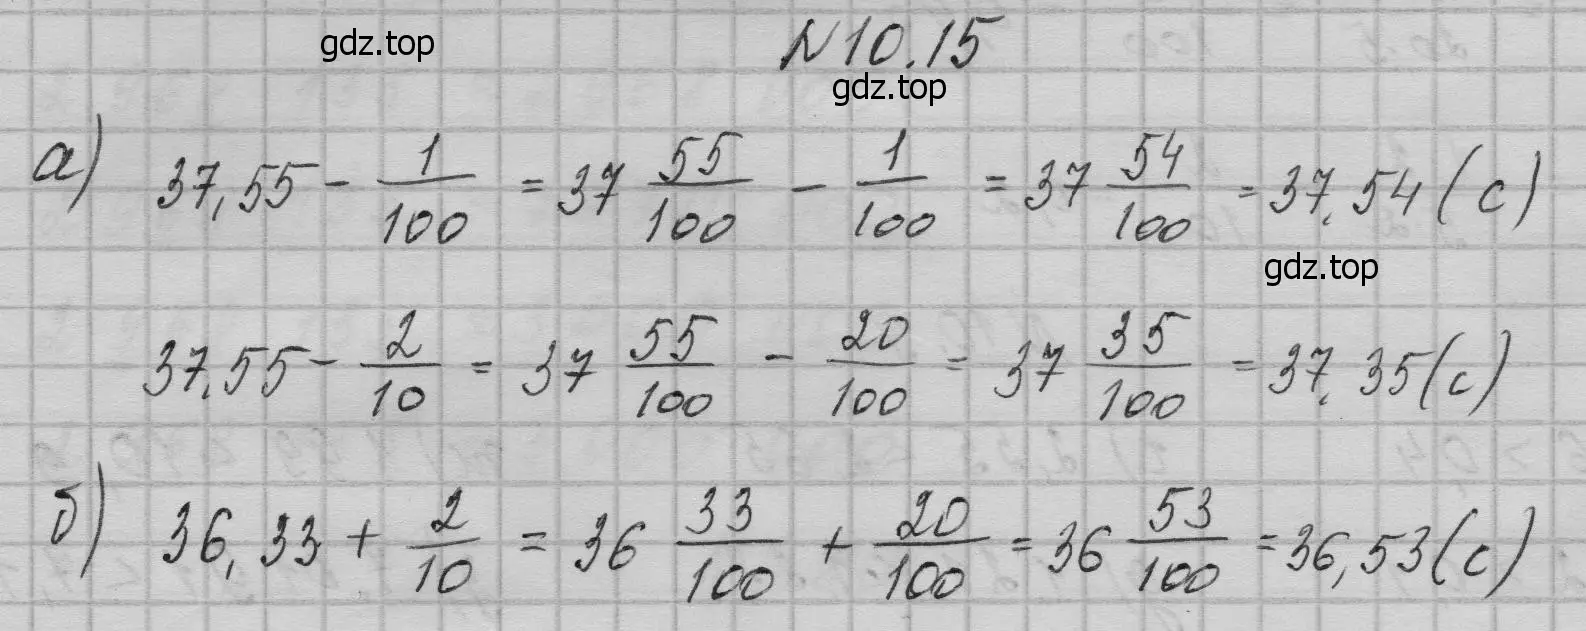 gdz.top
№ 10.15
gdz.top
а) 37,55 - 1/100 = 37 55/100 - 1/100 = 37 54/100 = 37,54 (с)
gdz.top
37,55 - 2/10 = 37 55/100 - 20/100 = 37 35/100 = 37,35 (с)
б) 36,33 + 2/10 = 36 33/100 + 20/100 = 36 53/100 = 36,53 (с)